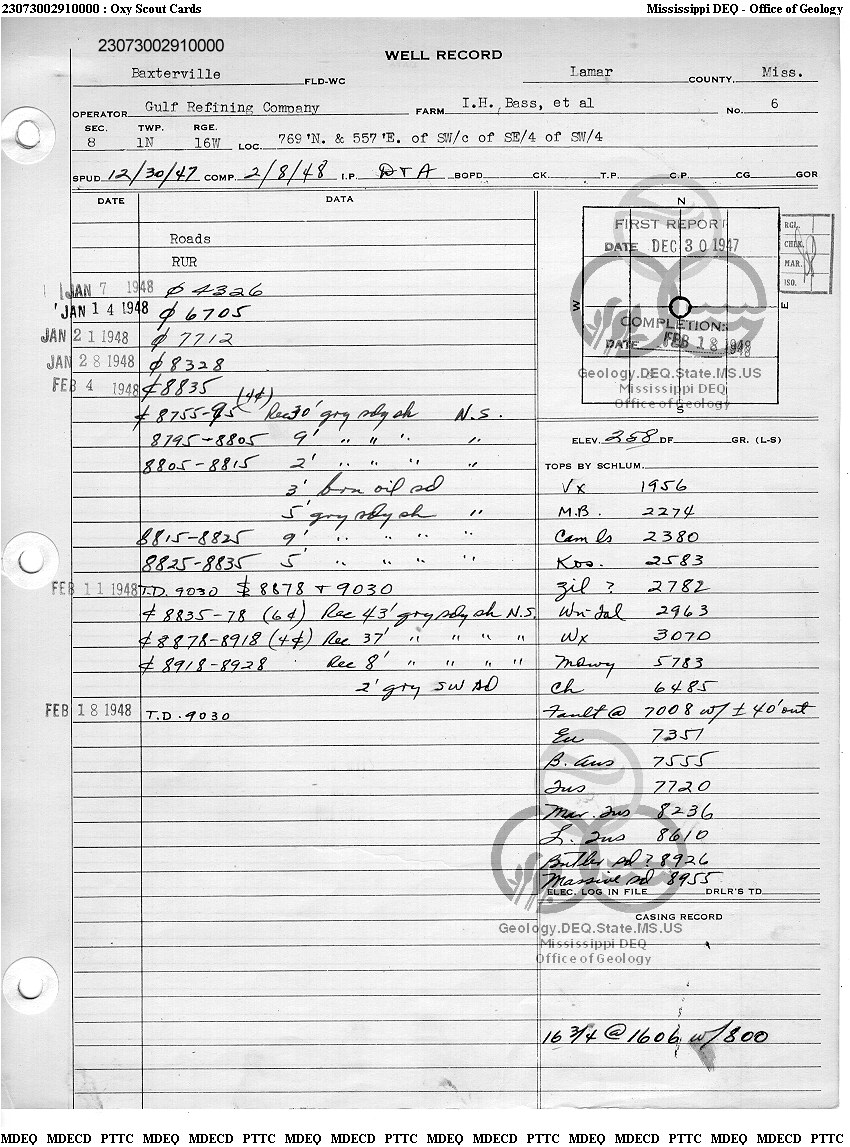 23073002910000 : Oxy Scout Cards Mississippi DEQ - Office of Geology
23073002910000
WELL RECORD
Baxterville FLD-WC Lamar COUNTY, Miss.
OPERATOR Gulf Refining Company FARM I.H. Bass, et al No. 6
SEC. TWP. RGE.
8 1N 16W LOC. 769'N. & 557'E. of SW/c of SE/4 of SW/4
SPUD 12/30/47 COMP. 2/8/48 I.P. D+A BOPD CK. T.P. C.P. CG GOR
DATE DATA
Roads
RUR
JAN 7 1948 ₵ 4326
JAN 14 1948 ₵ 6705
JAN 21 1948 ₵ 7712
JAN 28 1948 ₵ 8328
FEB 4 1948 ₵ 8835
₵ 8755-95 (4₵) Rec 30' gry sdy sh N.S.
8795-8805 9' " " " "
8805-8815 2' " " " "
3' brn oil sd
5' gry sdy sh "
8815-8825 9' " " " "
8825-8835 5' " " " "
FEB 11 1948 T.D. 9030 $ 8878 + 9030
₵ 8835-78 (6₵) Rec 43' gry sdy sh N.S.
₵ 8878-8918 (4₵) Rec 37' " " " "
₵ 8918-8928 Rec 8' " " " "
2' gry SW sd
FEB 18 1948 T.D. 9030
N
FIRST REPORT
DATE DEC 30 1947
W E
COMPLETION:
DATE FEB 18 1948
S
RGL.
CHLK.
MAR.
ISO.
Geology.DEQ.State.MS.US
Mississippi DEQ
Office of Geology
ELEV. 258 DF GR. (L-S)
TOPS BY SCHLUM.
Vx 1956
M.B. 2274
Cam ls 2380
Kos. 2583
Zil ? 2782
Wn-Tal 2963
Wx 3070
Mdwy 5783
Ch 6485
Fault @ 7008 w/ ± 40' out
Eu 7351
B. Aus 7555
Tus 7720
Mar. Tus 8236
L. Tus 8610
Butler sd ? 8926
Massive sd 8955
ELEC. LOG IN FILE DRLR'S TD
CASING RECORD
Geology.DEQ.State.MS.US
Mississippi DEQ
Office of Geology
16 3/4 @ 1606 w/800
MDEQ MDECD PTTC MDEQ MDECD PTTC MDEQ MDECD PTTC MDEQ MDECD PTTC MDEQ MDECD PTTC MDEQ MDECD PTTC